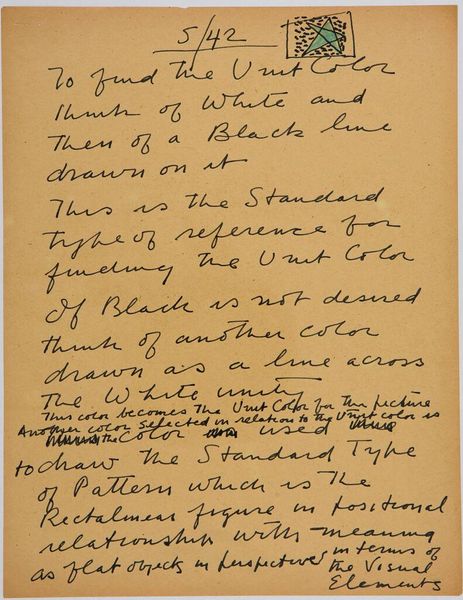 5/42
To find the Unit Color
think of White and
then of a Black line
drawn on it
This is the Standard
type of reference for
finding the Unit Color
If Black is not desired
think of another color
drawn as a line across
the White unit
This color becomes the Unit Color for the picture
Another color selected in relation to the Unit color is
the color used
to draw the Standard Type
of Pattern which is the
Rectalinear figure in positional
relationship with meaning
as flat objects in perspective in terms of
the Visual
Elements